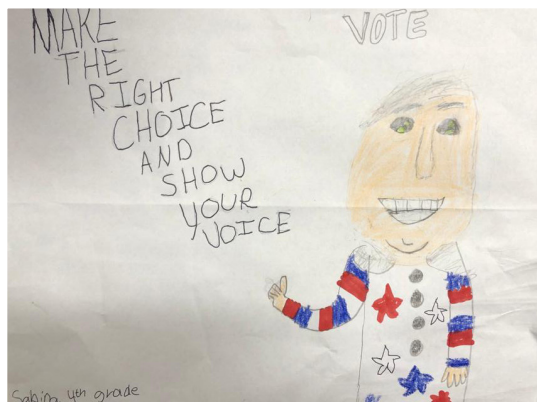 MAKE
THE
RIGHT
CHOICE
AND
SHOW
YOUR
VOICE
VOTE
Sabina 4th grade